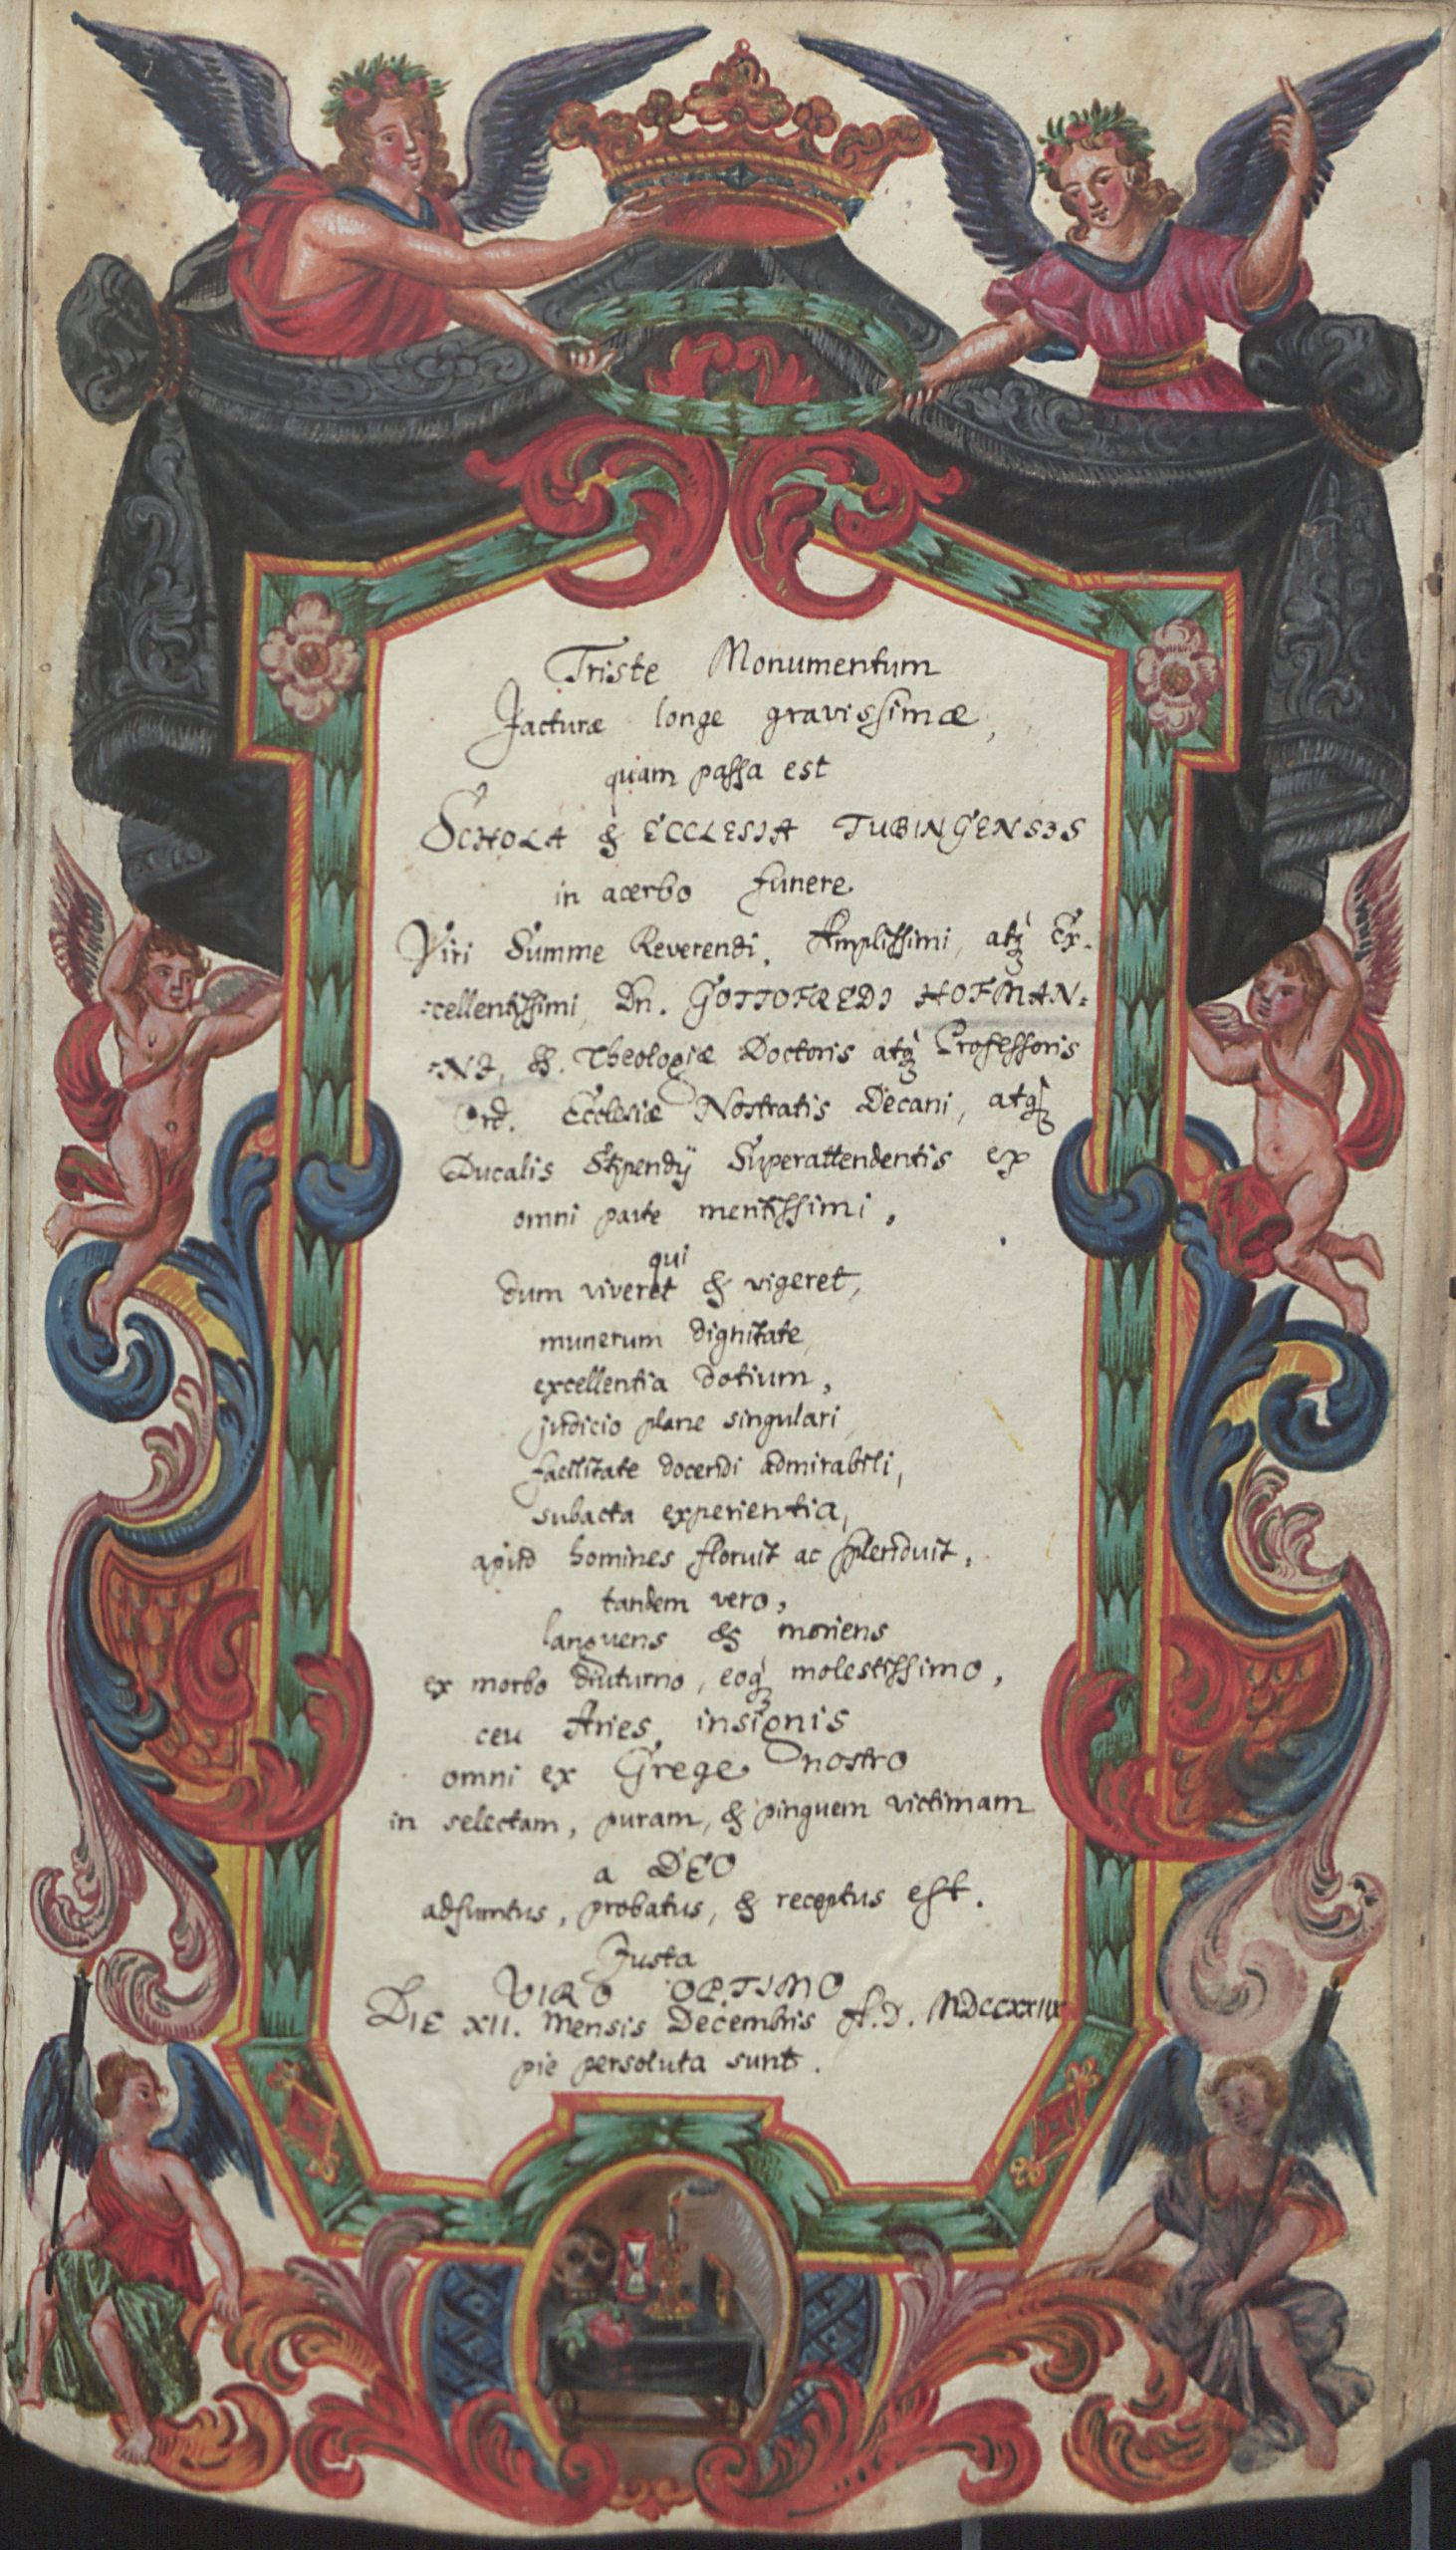 Triste Monumentum
Jacturæ longe gravissimæ,
quam passa est
SCHOLA & ECCLESIA TUBINGENSIS
in acerbo funere
Viri Summe Reverendi, Amplissimi, atq́ Ex-
-cellentissimi, Dn. GOTTOFREDI HOFMAN=
=NI, SS. Theologiæ Doctoris atq́ Professoris
Ord. Ecclesiæ Nostratis Decani, atq́
Ducalis Stipendij Superattendentis ex
omni parte meritissimi,
qui
dum viveret & vigeret,
munerum dignitate,
excellentia dotium,
judicio plane singulari,
facilitate docendi admirabili,
subacta experientia,
apud homines floruit ac splenduit,
tandem vero,
languens & moriens
ex morbo diuturno, eoq́ molestissimo,
ceu Aries insignis
omni ex Grege nostro
in selectam, puram, & pinguem victimam
a DEO
adsumtus, probatus, & receptus est.
Justa
VIRO OPTIMO
DIE XII. Mensis Decembris A.D. MDCCXXIIX
pie persoluta sunt.